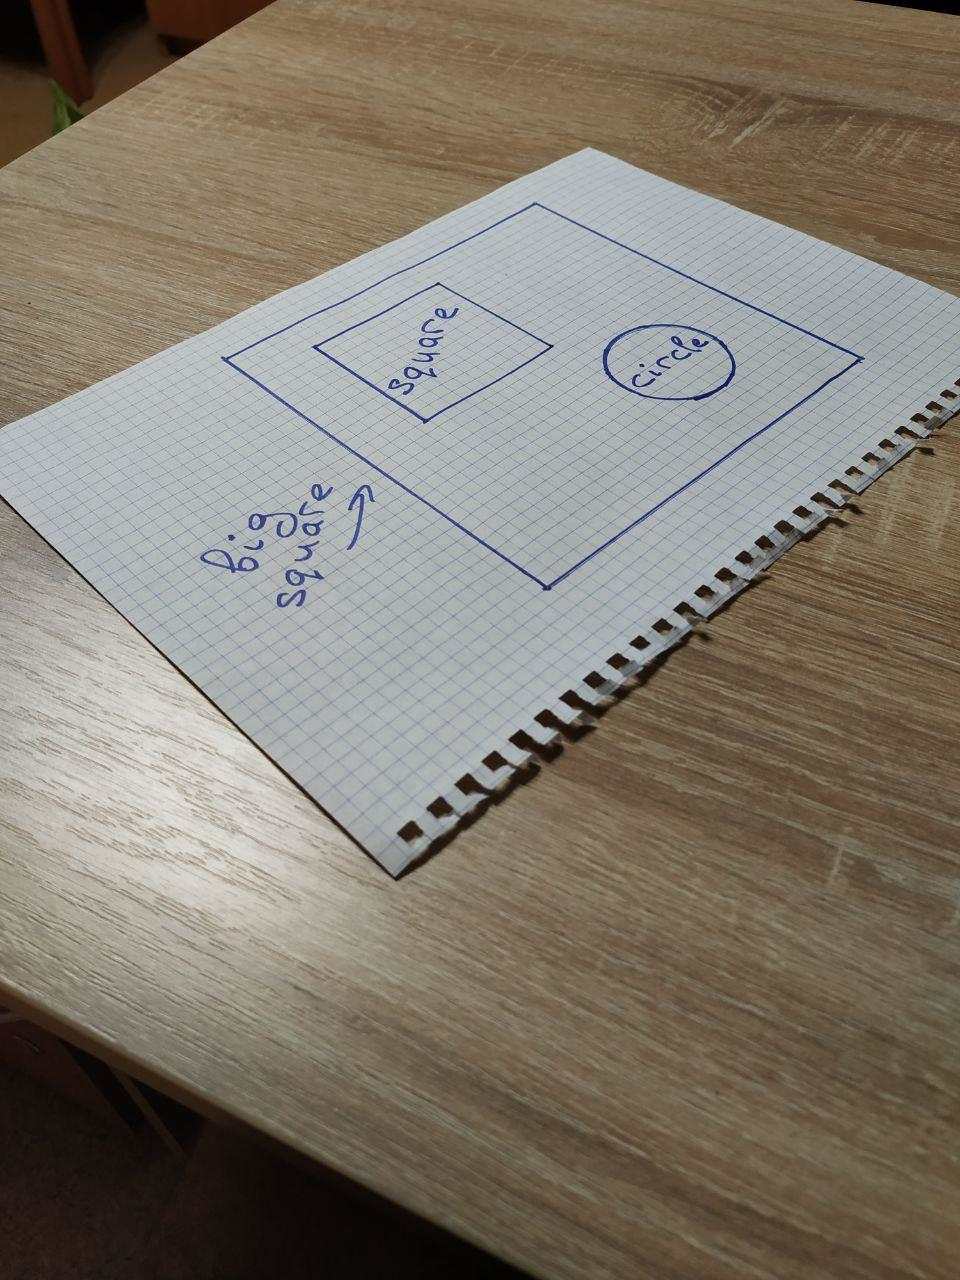 square
circle
big
square